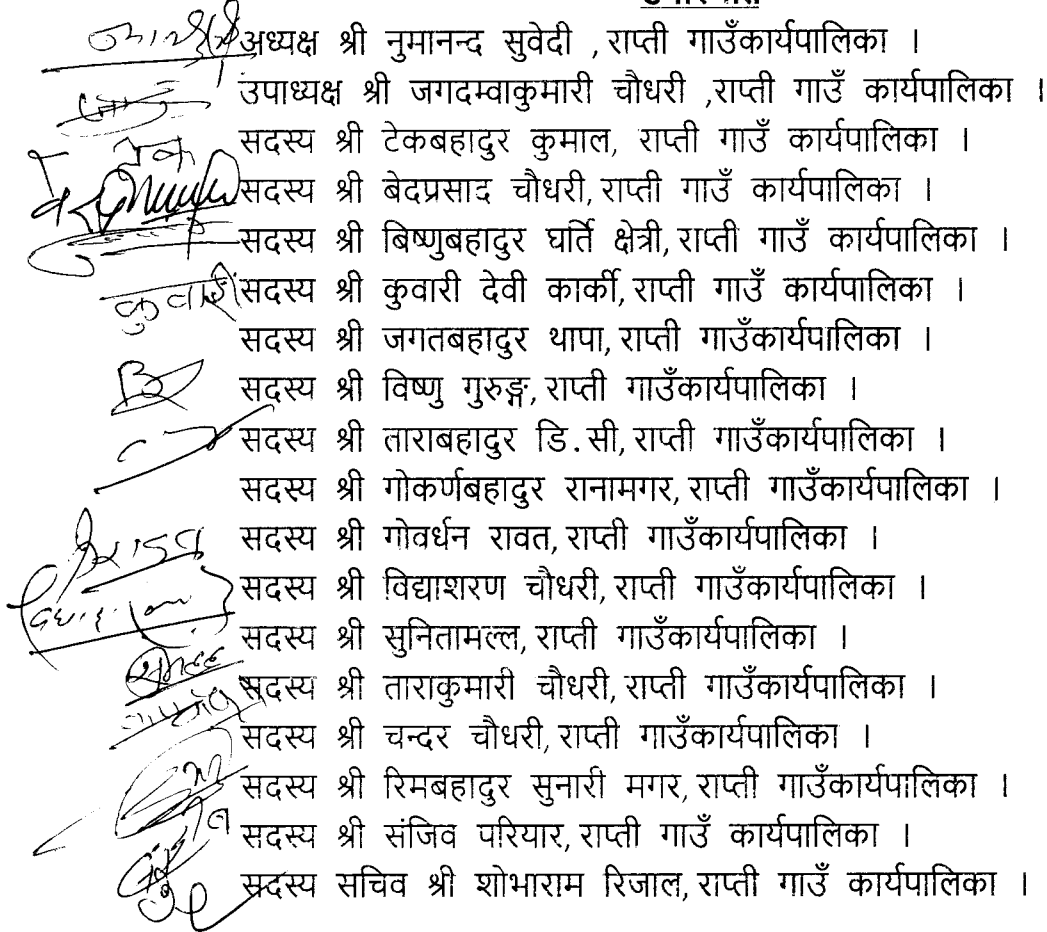 अध्यक्ष श्री नुमानन्द सुवेदी ,राप्ती गाउँकार्यपालिका ।
उपाध्यक्ष श्री जगदम्वाकुमारी चौधरी ,राप्ती गाउँ कार्यपालिका ।
टेक सदस्य श्री टेकबहादुर कुमाल, राप्ती गाउँ कार्यपालिका ।
सदस्य श्री बेदप्रसाद चौधरी, राप्ती गाउँ कार्यपालिका ।
सदस्य श्री बिष्णुबहादुर घर्ति क्षेत्री, राप्ती गाउँ कार्यपालिका ।
कुवारी सदस्य श्री कुवारी देवी कार्की, राप्ती गाउँ कार्यपालिका ।
सदस्य श्री जगतबहादुर थापा, राप्ती गाउँकार्यपालिका ।
सदस्य श्री विष्णु गुरुङ्ग, राप्ती गाउँकार्यपालिका ।
सदस्य श्री ताराबहादुर डि.सी, राप्ती गाउँकार्यपालिका ।
सदस्य श्री गोकर्णबहादुर रानामगर, राप्ती गाउँकार्यपालिका ।
सदस्य श्री गोवर्धन रावत, राप्ती गाउँकार्यपालिका ।
सदस्य श्री विद्याशरण चौधरी, राप्ती गाउँकार्यपालिका ।
सदस्य श्री सुनितामल्ल, राप्ती गाउँकार्यपालिका ।
सदस्य श्री ताराकुमारी चौधरी, राप्ती गाउँकार्यपालिका ।
सदस्य श्री चन्दर चौधरी, राप्ती गाउँकार्यपालिका ।
सदस्य श्री रिमबहादुर सुनारी मगर, राप्ती गाउँकार्यपालिका ।
सदस्य श्री संजिव परियार, राप्ती गाउँ कार्यपालिका ।
सदस्य सचिव श्री शोभाराम रिजाल, राप्ती गाउँ कार्यपालिका ।